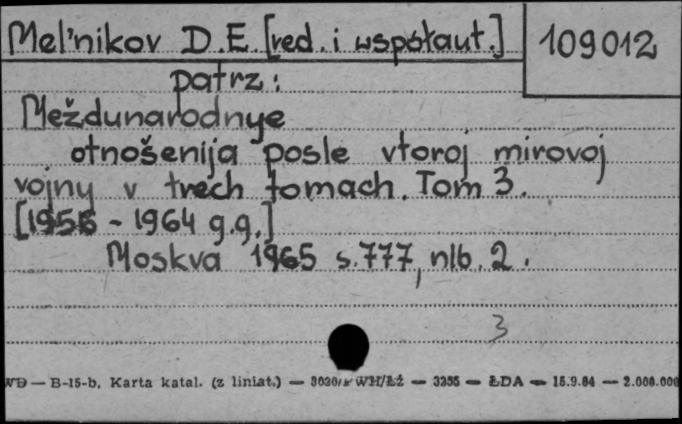 Mel'nikov D.E. [red. i współaut.]
109012
patrz:
Meždunarodnye
otnošenija posle vtoroj mirovoj
vojny v trech tomach. Tom 3.
[1956 - 1964 g.g.]
Moskva 1965 s. 777, nlb. 2.
3
WD — B-15-b, Karta katal. (z liniat.) — — 3255 — ŁDA — 15.9.64 — 2.000.000